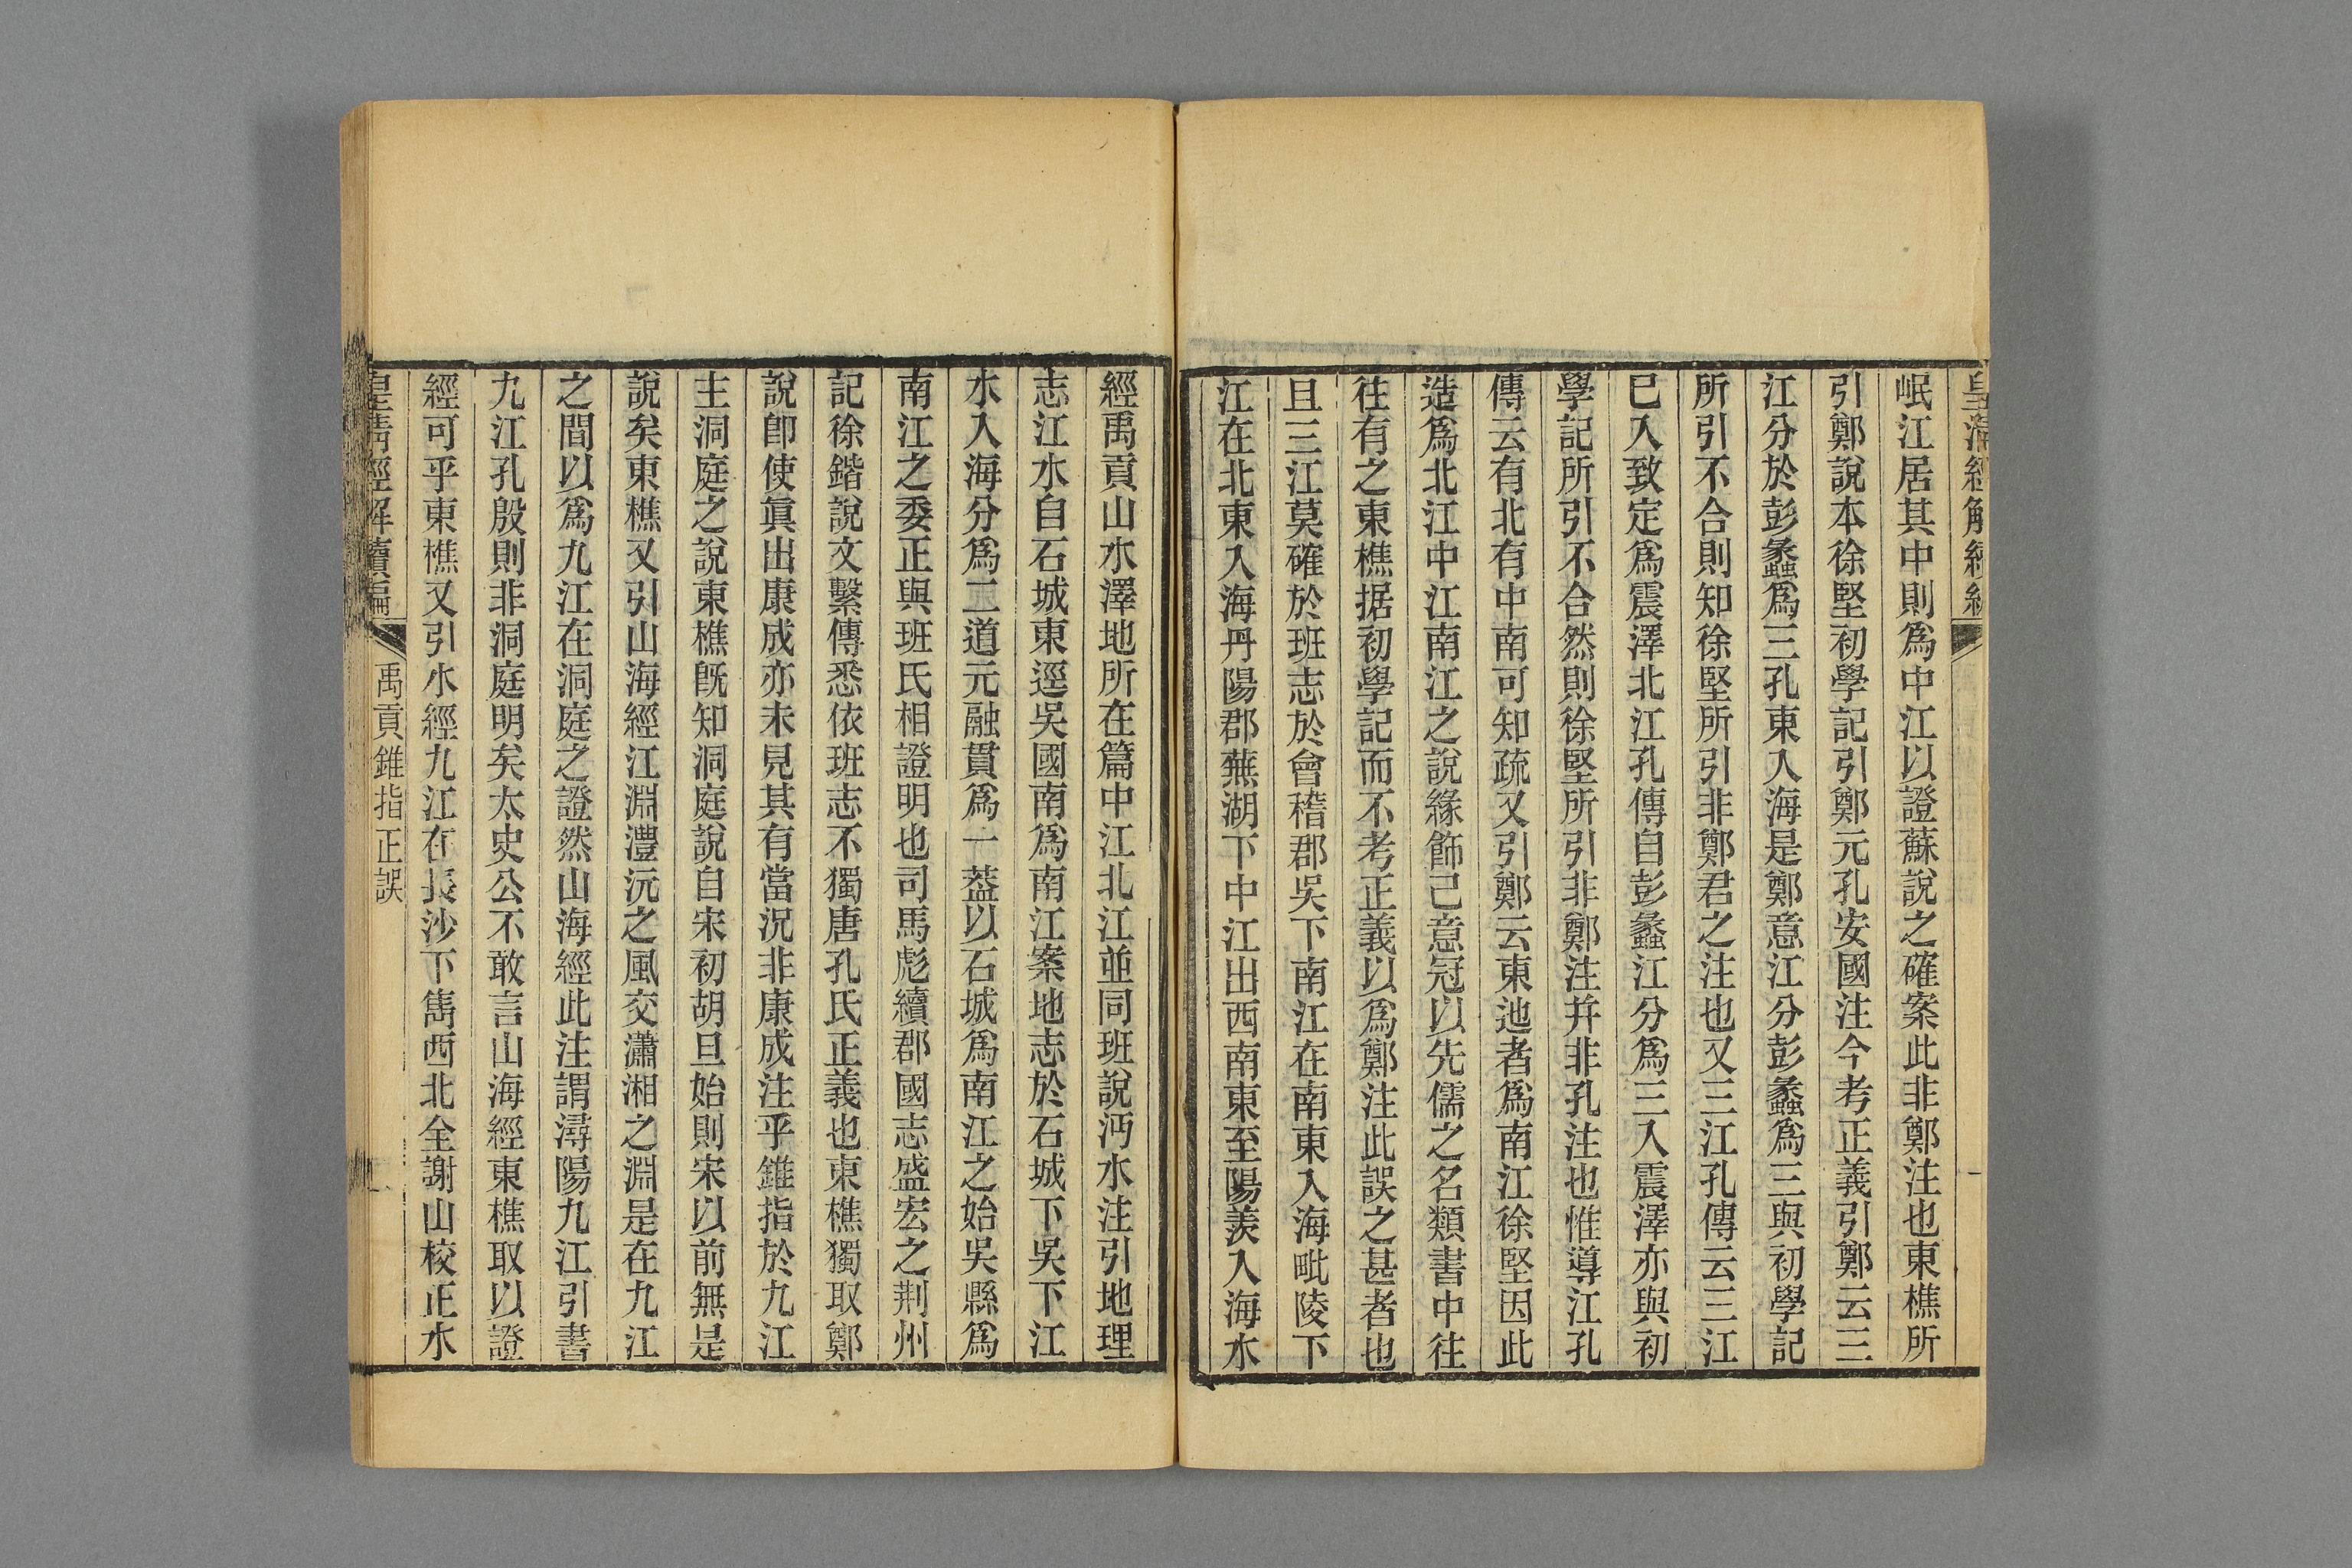 皇清經解續編
岷江居其中則爲中江以證蘇說之確案此非鄭注也東樵所
引鄭說本徐堅初學記引鄭元孔安國注今考正義引鄭云三
江分於彭蠡爲三孔東入海是鄭意江分彭蠡爲三與初學記
所引不合則知徐堅所引非鄭君之注也又三江孔傳云三江
已入致定爲震澤北江孔傳自彭蠡江分爲三入震澤亦與初
學記所引不合然則徐堅所引非鄭注幷非孔注也惟導江孔
傳云有北有中南可知疏又引鄭云東迆者爲南江徐堅因此
造爲北江中江南江之說緣飾己意冠以先儒之名類書中往
往有之東樵据初學記而不考正義以爲鄭注此誤之甚者也
且三江莫確於班志於會稽郡吳下南江在南東入海毗陵下
江在北東入海丹陽郡蕪湖下中江出西南東至陽羨入海水
經禹貢山水澤地所在篇中江北江並同班說沔水注引地理
志江水自石城東逕吳國南爲南江案地志於石城下吳下江
水入海分爲二道元融貫爲一葢以石城爲南江之始吳縣爲
南江之委正與班氏相證明也司馬彪續郡國志盛宏之荆州
記徐鍇說文繫傳悉依班志不獨唐孔氏正義也東樵獨取鄭
說卽使眞出康成亦未見其有當況非康成注乎錐指於九江
主洞庭之說東樵旣知洞庭說自宋初胡旦始則宋以前無是
說矣東樵又引山海經江淵澧沅之風交瀟湘之淵是在九江
之間以爲九江在洞庭之證然山海經此注謂潯陽九江引書
九江孔殷則非洞庭明矣太史公不敢言山海經東樵取以證
經可乎東樵又引水經九江在長沙下雋西北全謝山校正水
皇清經解續編 禹貢錐指正誤